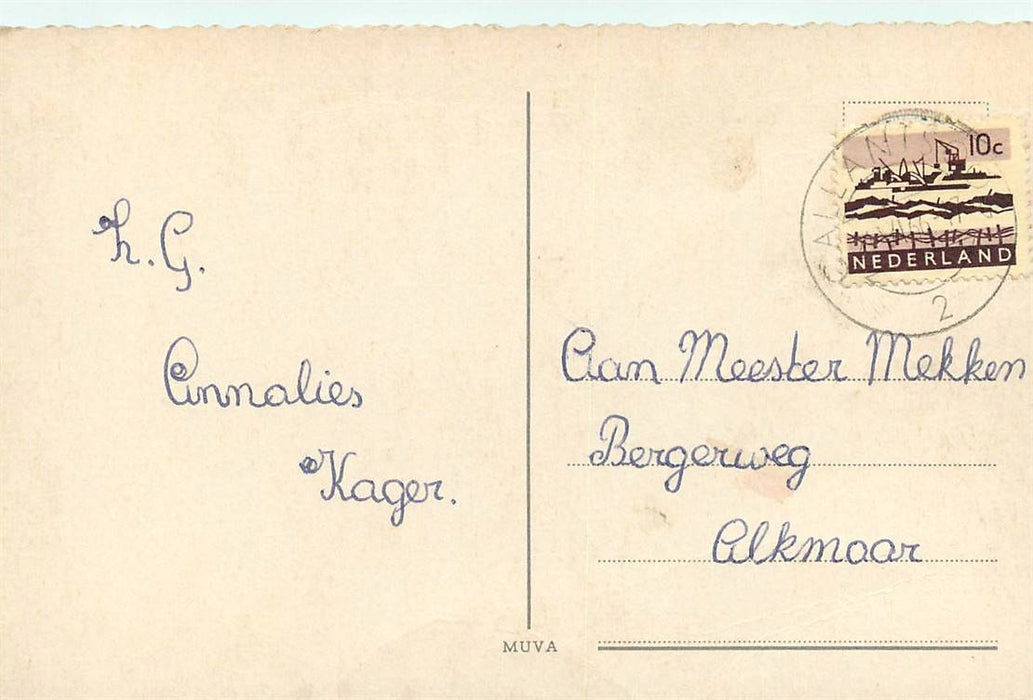 h. G.
Annalies
Kager.
10c
NEDERLAND
2
Aan Meester Mekken
Bergerweg
Alkmaar
MUVA